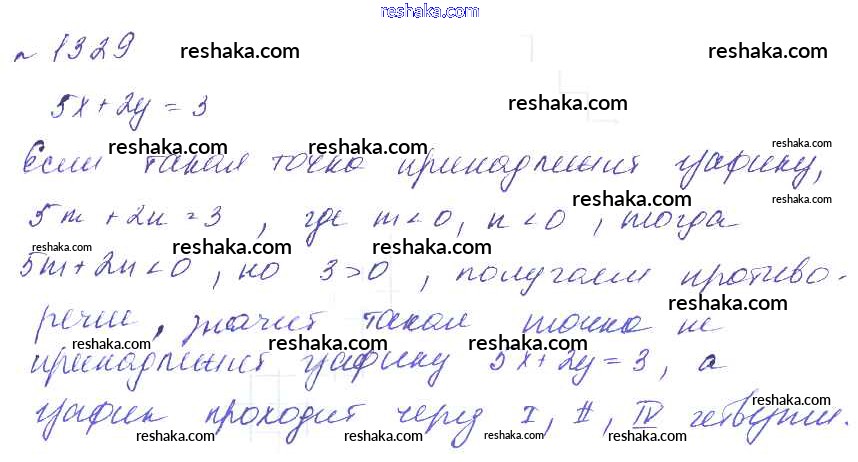 reshaka.com
№ 1329 reshaka.com reshaka.com
5x + 2y = 3 reshaka.com
reshaka.com reshaka.com reshaka.com
Если такая точка принадлежит графику,
reshaka.com reshaka.com
5m + 2n = 3, где m < 0, n < 0, тогда
reshaka.com reshaka.com reshaka.com
5m + 2n < 0, но 3 > 0, получаем противо-
reshaka.com
речие, значит такая точка не
reshaka.com reshaka.com reshaka.com
принадлежит графику 5x + 2y = 3, а
reshaka.com reshaka.com
график проходит через I, II, IV четверти.
reshaka.com reshaka.com reshaka.com reshaka.com